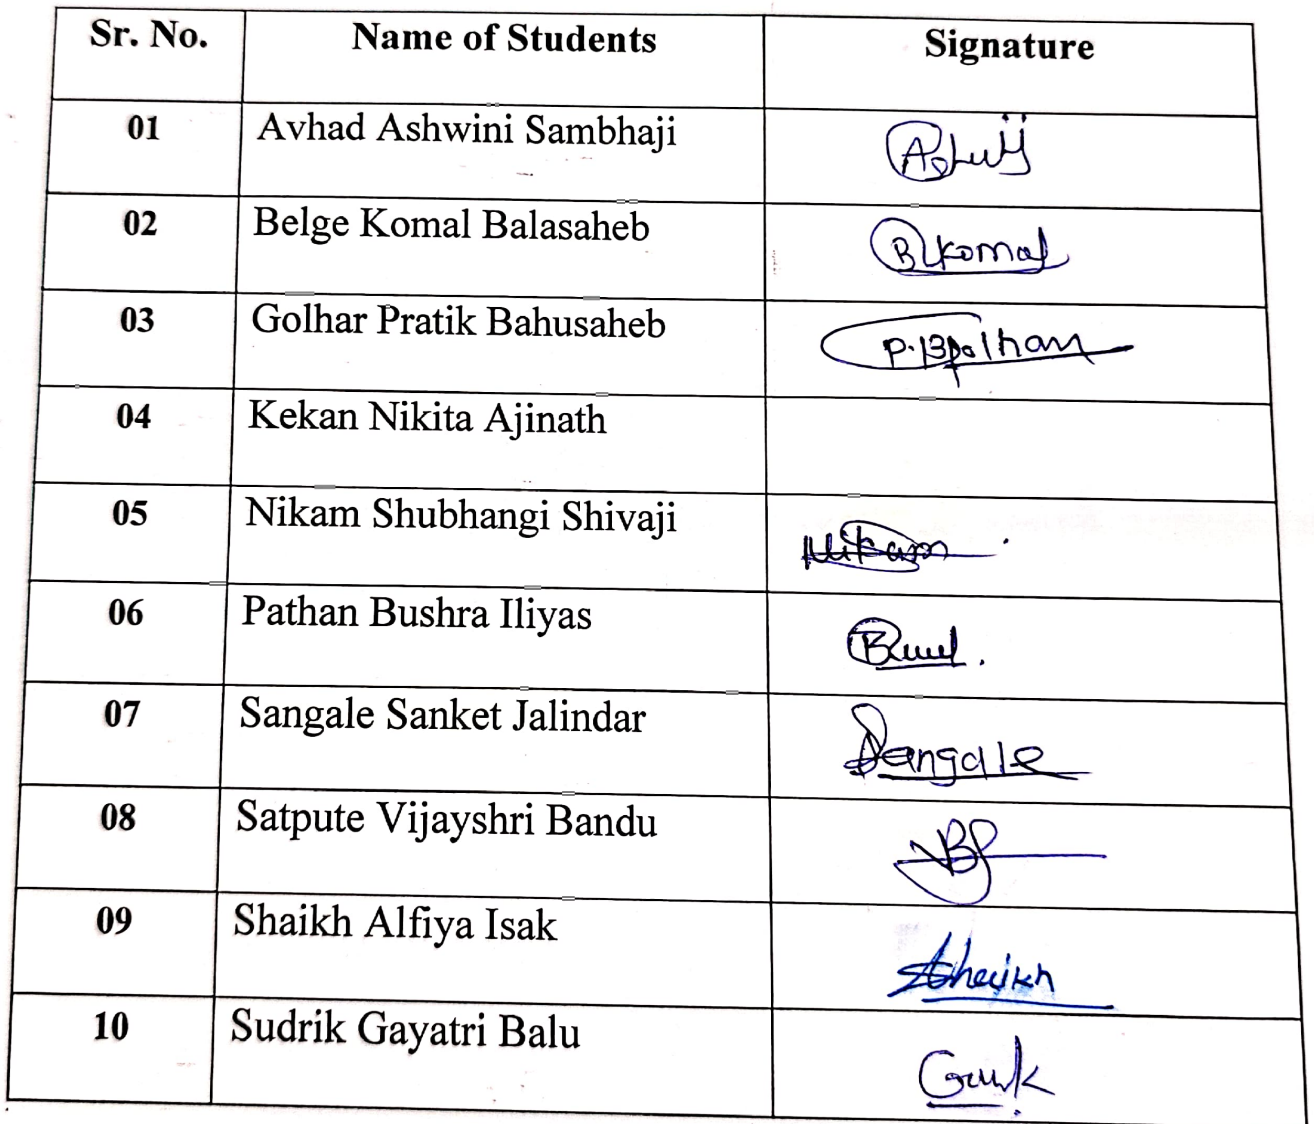 Sr. No. Name of Students Signature
01 Avhad Ashwini Sambhaji
02 Belge Komal Balasaheb BKomal
03 Golhar Pratik Bahusaheb
04 Kekan Nikita Ajinath
05 Nikam Shubhangi Shivaji Nikam
06 Pathan Bushra Iliyas
07 Sangale Sanket Jalindar Sangale
08 Satpute Vijayshri Bandu
09 Shaikh Alfiya Isak
10 Sudrik Gayatri Balu